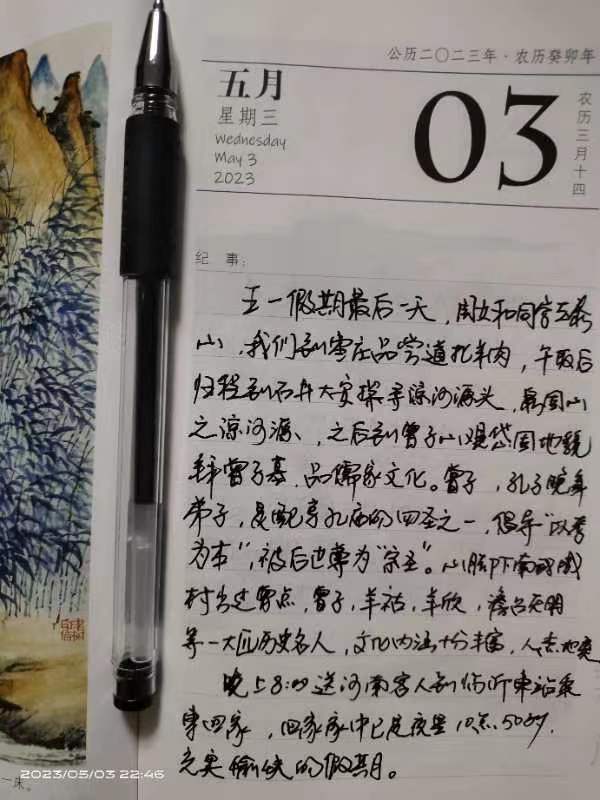 公历二〇二三年·农历癸卯年
五月
星期三
Wednesday
May 3
2023
03
农历三月十四
纪 事:
五一假期最后一天,闺女和同学去泰
山,我们到枣庄品尝道北羊肉,午饭后
归程到石井大安探寻浪河源头,
之浪河源、,之后到曾子山观岱崮地貌
拜曾子墓,品儒家文化。曾子,孔子晚年
弟子,是配享孔庙的四圣之一,倡导“以孝
为本”,被后世尊为“宗圣”。山脚下南武城
村出过曾点,曾子,羊祜,羊欣,澹台灭明
等一大批历史名人,文化内涵十分丰富,人杰地灵
晚上8:00送河南客人到临沂东站乘
车回家,回家家中已是夜里10点50分,
充实愉快的假期。
2023/05/03 22:46